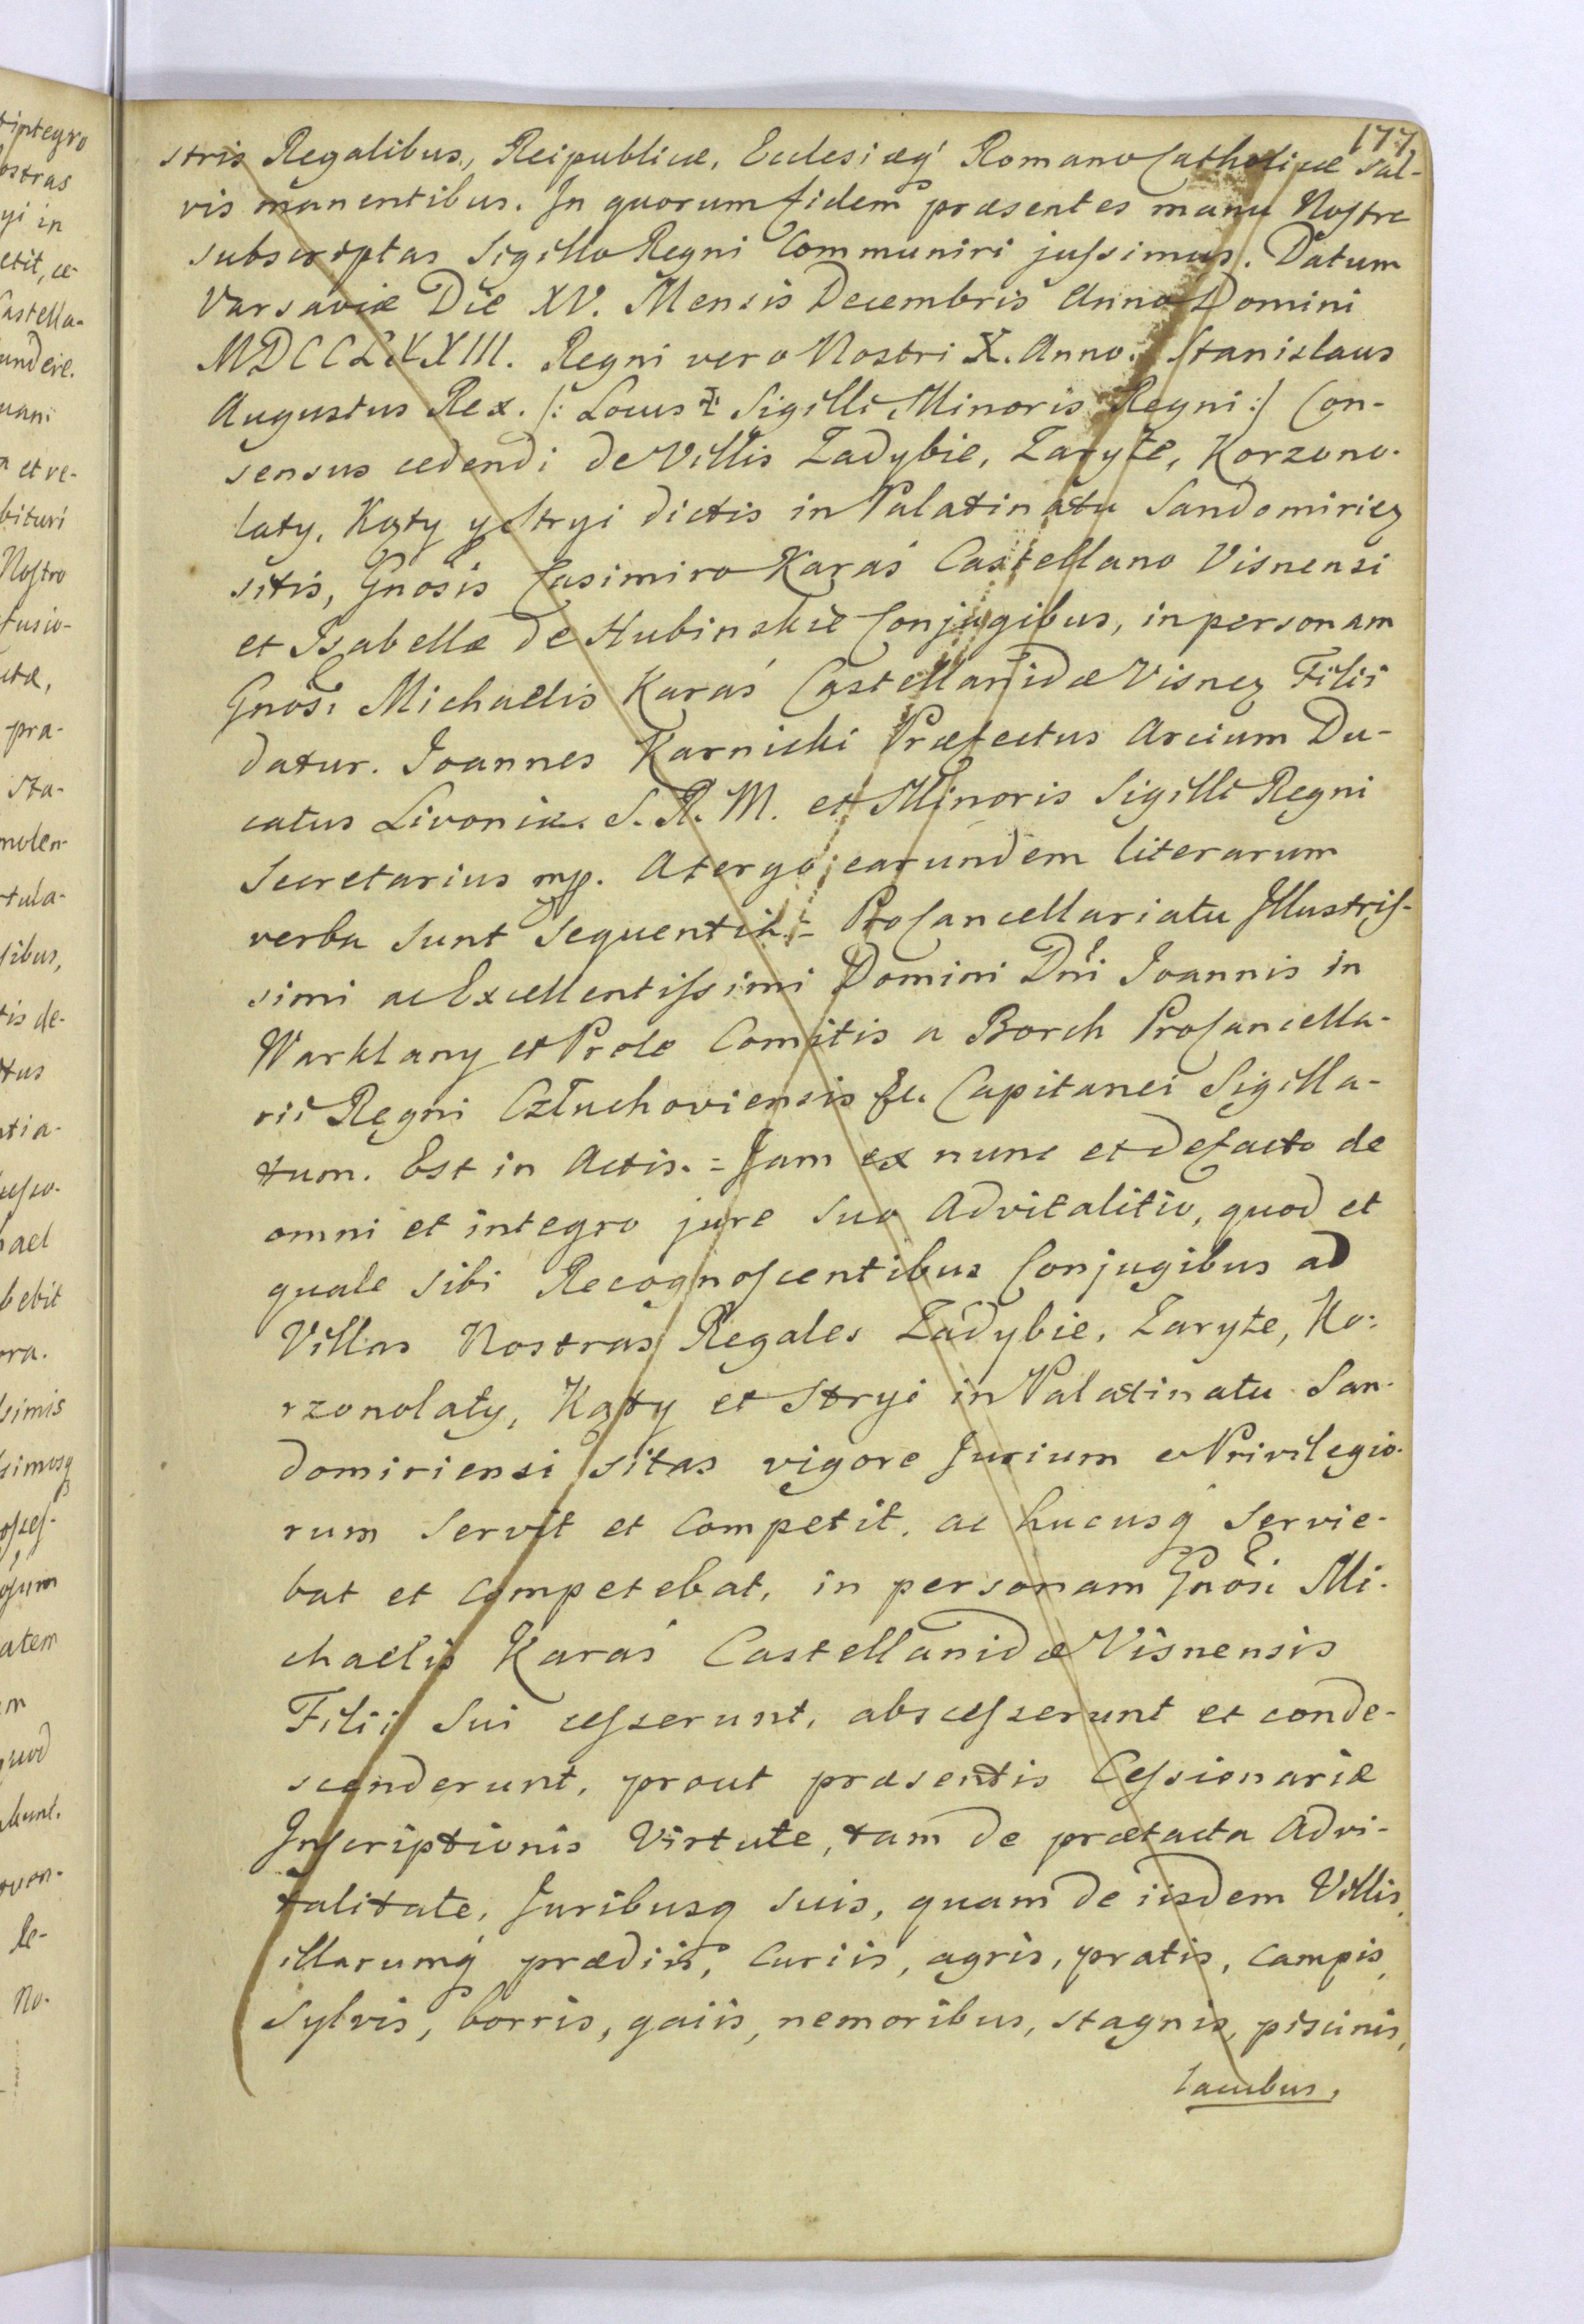 177
stris Regalibus, Reipublicæ, Ecclesiæq́ Romano Catholicæ sal-
vis manentibus. In quorum fidem præsentes manu Nostra
subscriptas Sigillo Regni Communiri jussimus. Datum
Varsaviæ Die XV. Mensis Decembris Anno Domini
MDCCLXXIII. Regni vero Nostri X. Anno. Stanislaus
Augustus Rex. /: Locus Sigilli Minoris Regni :/ Con-
sensus cedendi de Villis Zadybie, Zaryte, Korzono-
laty, Kąty y Stryi dictis in Palatinatu Sandomirieñ
sitis, Gnosis Casimiro Karaś Castellano Visnensi
et Isabellæ de Hubinskie Conjugibus, in personam
Gnosi Michaelis Karaś Castellanidæ Visneñ Filii
datur. Joannes Karnicki Præfectus Arcium Du-
catus Livoniæ. S. R. M. et Minoris Sigilli Regni
Secretarius mp. A tergo earundem literarum
verba sunt Sequentia = ProCancellariatu Illustris-
simi ac Excellentissimi Domini Dni Joannis in
Warklany et Prele Comitis a Borch ProCancella-
rii Regni Człuchoviensis &c. Capitanei Sigilla-
tum. Est in Actis. = Jam ex nunc et de facto de
omni et integro jure suo Advitalitio, quod et
quale sibi Recognoscentibus Conjugibus ad
Villas Nostras Regales Zadybie, Zaryte, Ko-
rzonolaty, Kąty et Stryi in Palatinatu San-
domiriensi sitas vigore Jurium et Privilegio-
rum servit et Competit, ac hucusq́ servie-
bat et Competebat, in personam Gnosi Mi-
chaelis Karaś Castellanidæ Visnensis
Filii Sui cesserunt, abscesserunt et conde-
scenderunt, prout præsentis Cessionariæ
Inscriptionis Virtute, tam de prætacta Advi-
talitate, Juribusq suis, quam de iisdem Villis,
illarumq́ prædiis, Curiis, agris, pratis, Campis,
Sylvis, borris, gaiis, nemoribus, stagnis, piscinis,
lacubus,